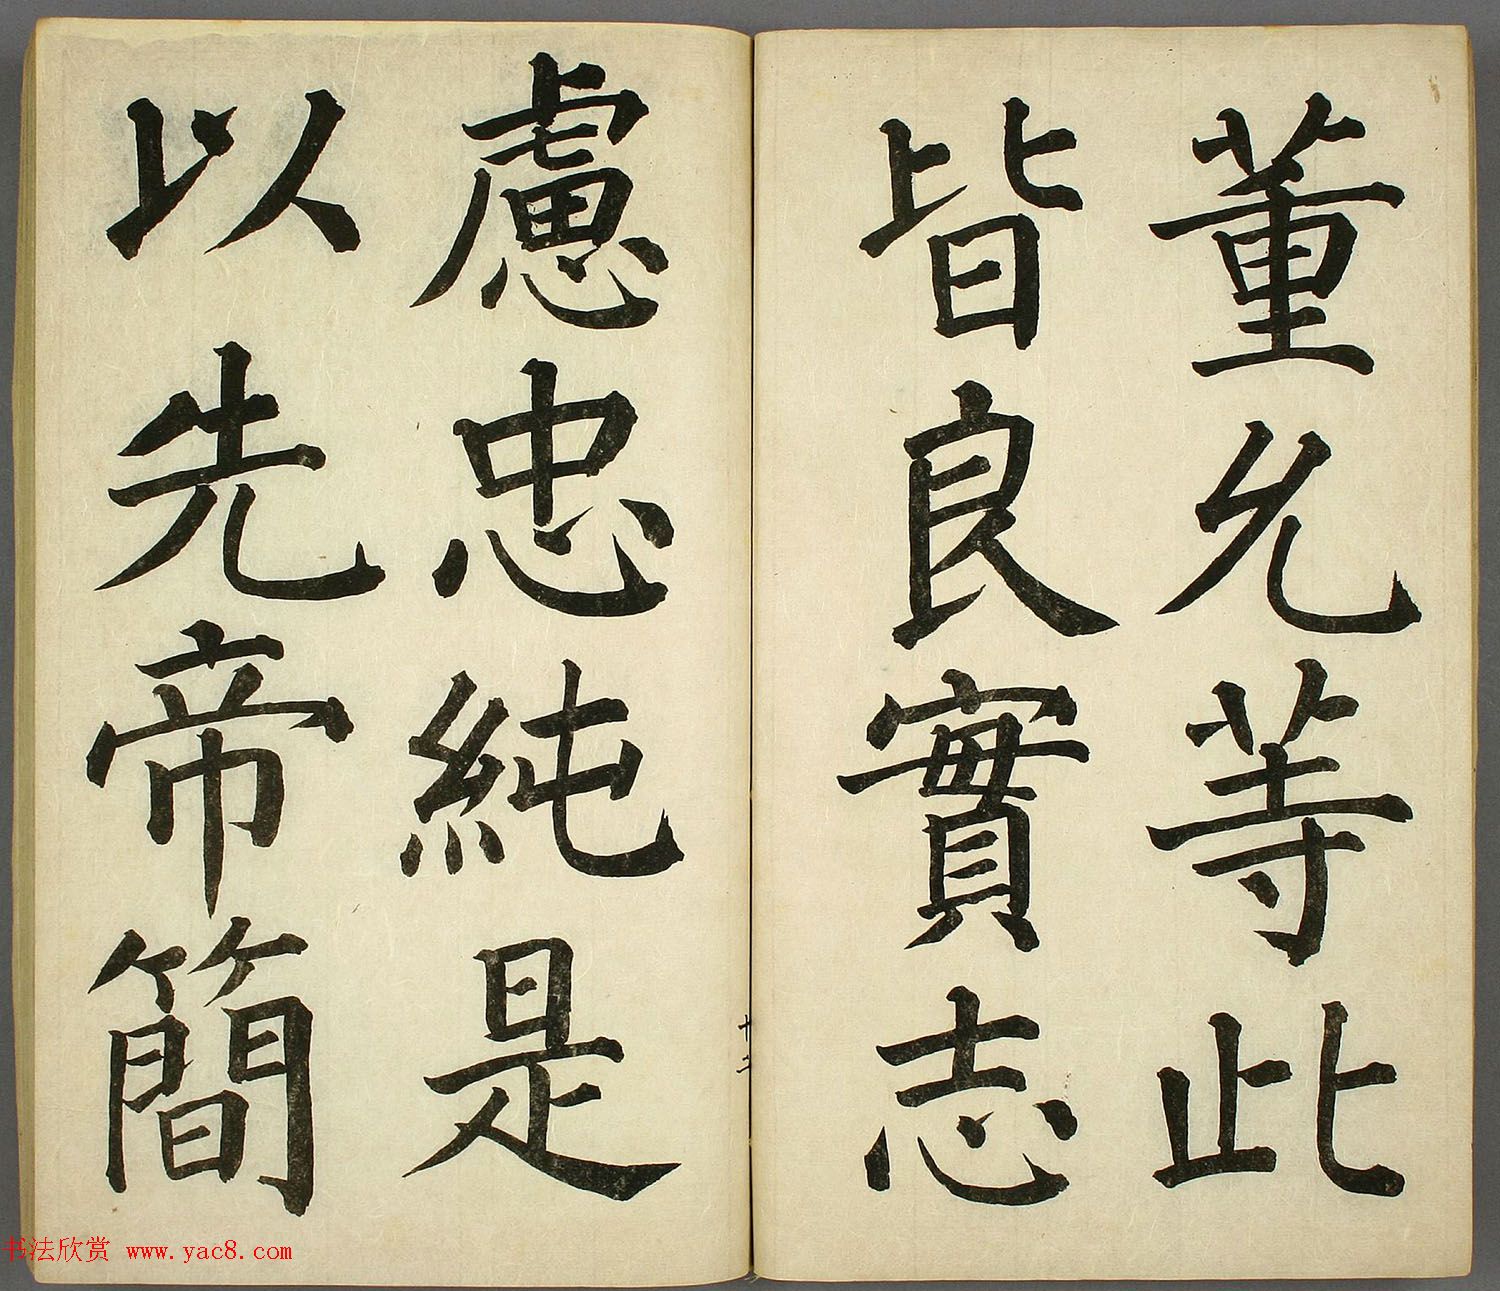 董允等此
皆良實志
慮忠純是
以先帝簡
十二
书法欣赏 www.yac8.com